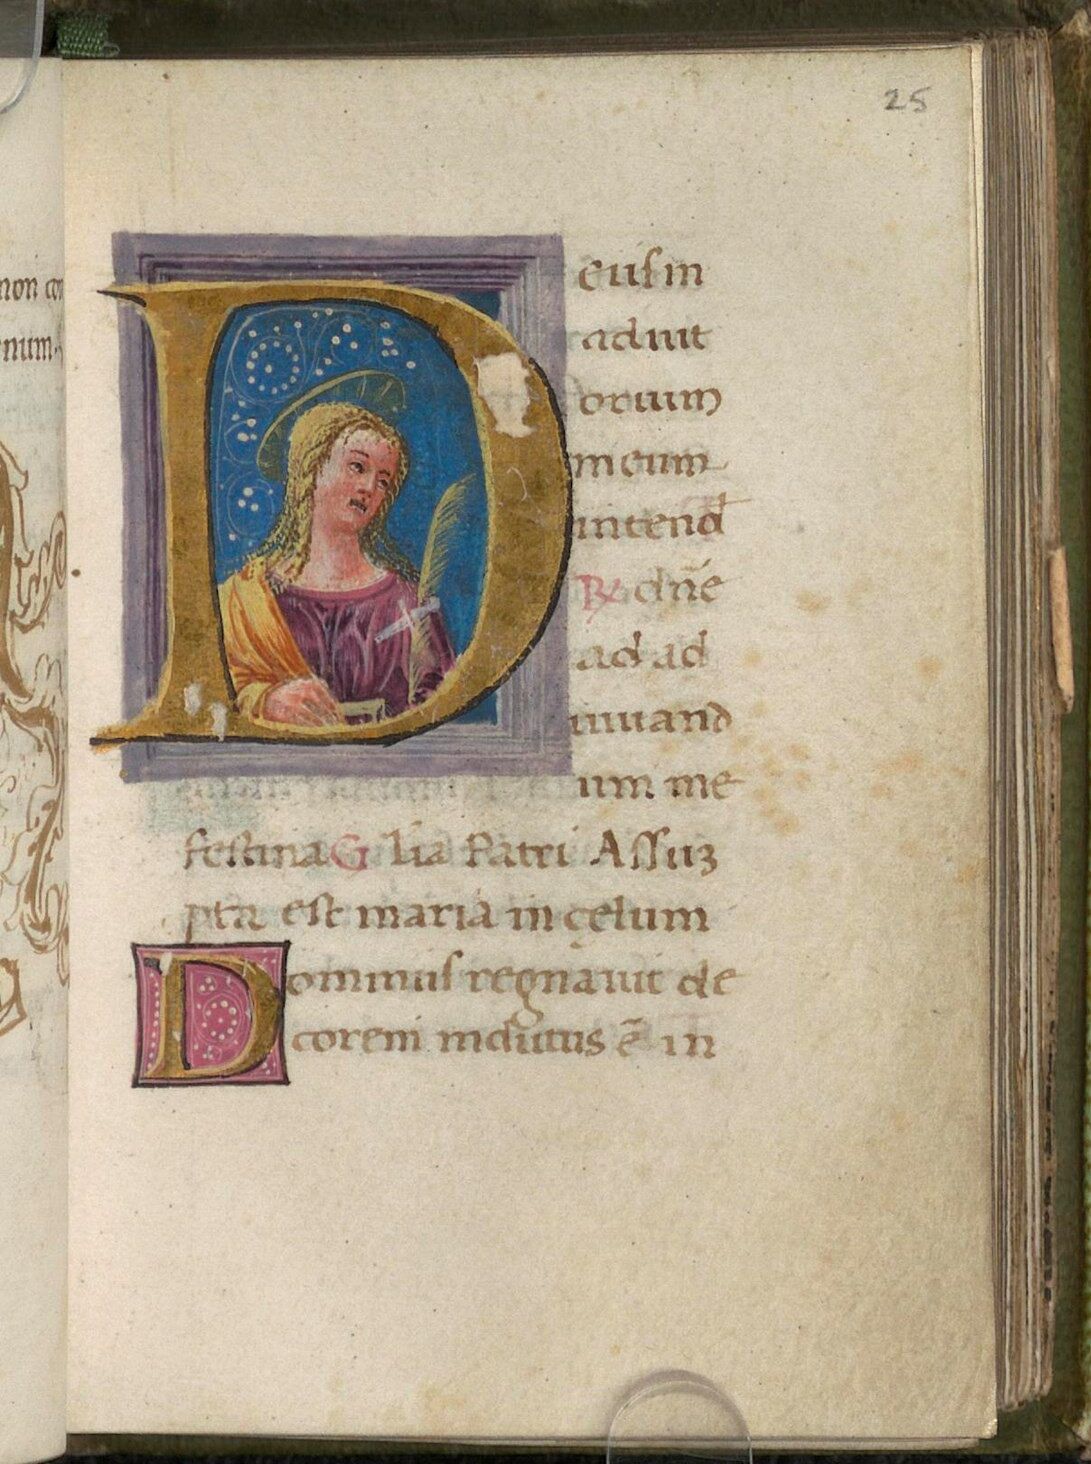 25
non co
num
Deus in
adiut
orium
meum
intend
℟ dn̄e
ad ad
iuuand
um me
festina Glia Patri Assuʒ
pta est maria in celum
Dominus regnauit de
corem indutus ē in